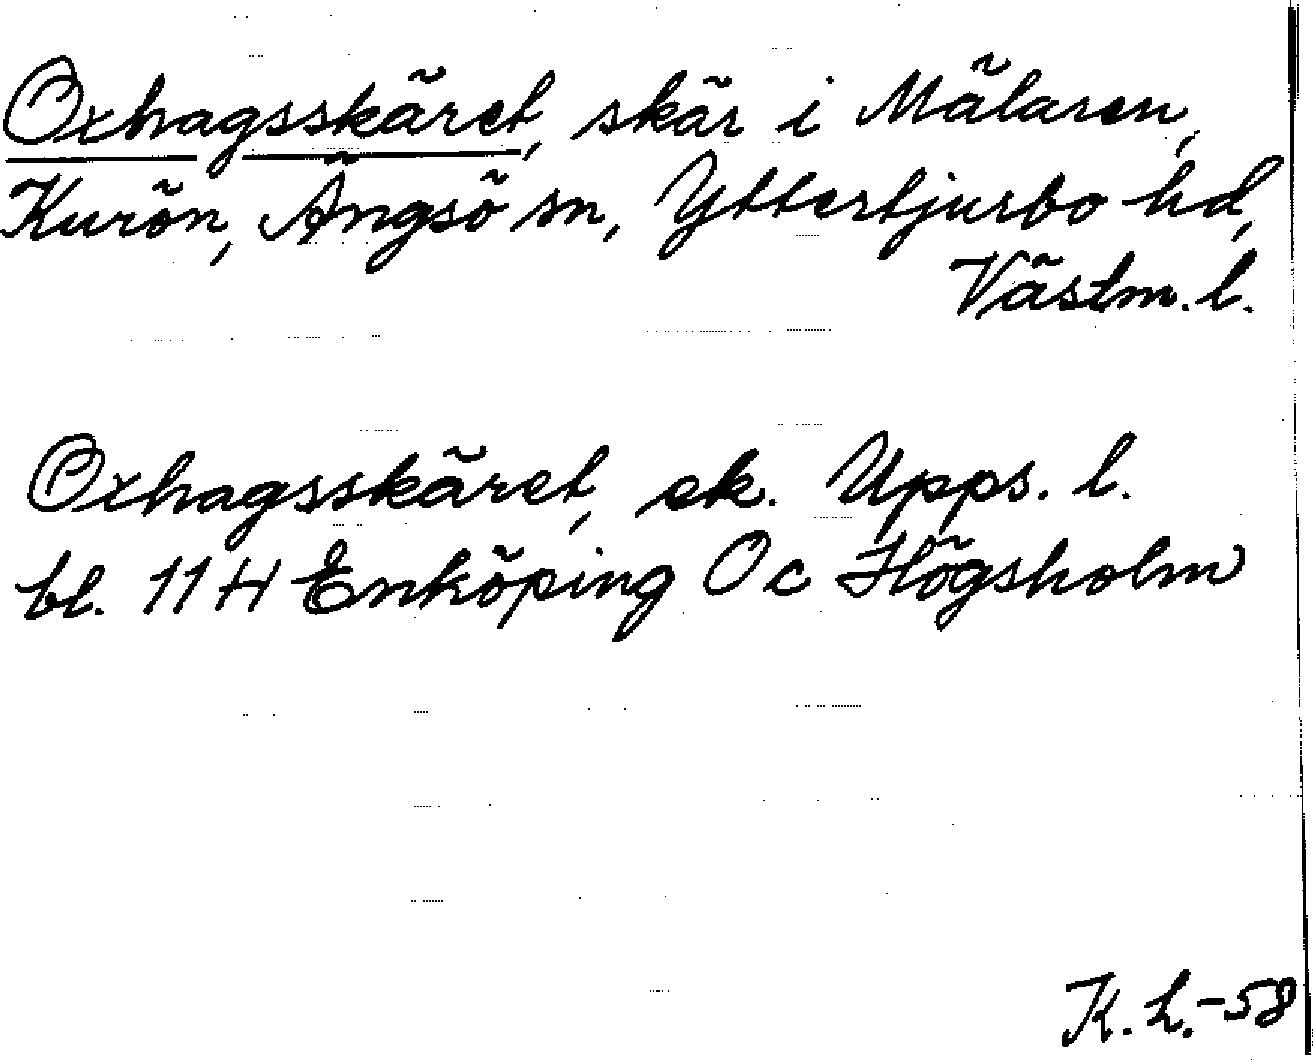 Oxhagsskäret, skär i Mälaren,
Kurön, Ängsö sn, Yttertjurbo hd,
Västm. l.
Oxhagsskäret, ek. Upps. l.
bl. 11 H Enköping O c Högsholm
K. L. -58